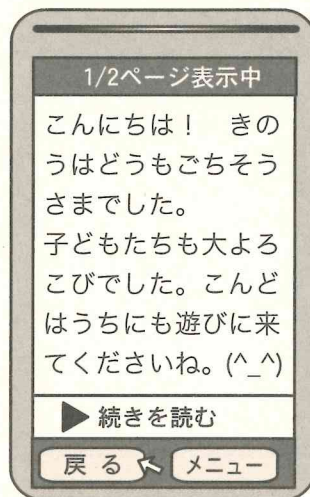 1/2ページ表示中
こんにちは！　きの
うはどうもごちそう
さまでした。
子どもたちも大よろ
こびでした。こんど
はうちにも遊びに来
てくださいね。(^_^)
▶続きを読む
戻る メニュー